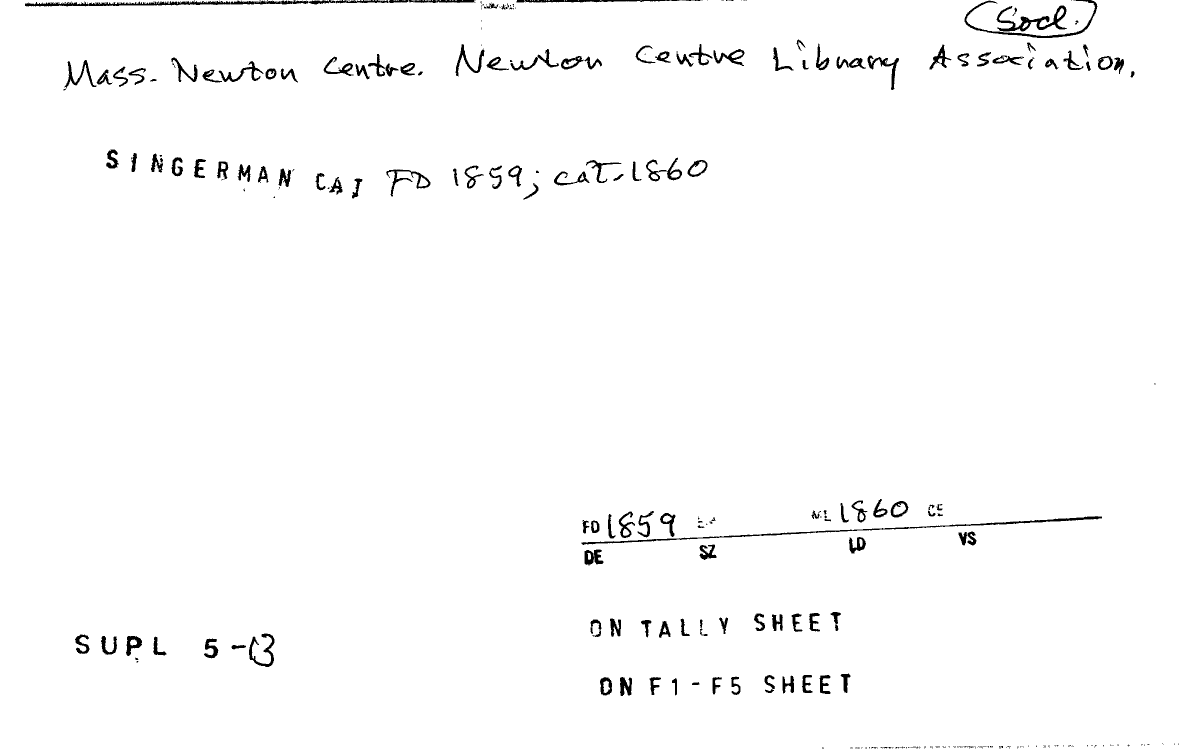 (Socl.)
Mass. Newton Centre. Newton Centre Library Association.
SINGERMAN CAT FD 1859; cat. 1860
FD 1859 ML 1860 CE
DE SZ LD VS
ON TALLY SHEET
SUPL 5-13
ON F1-F5 SHEET